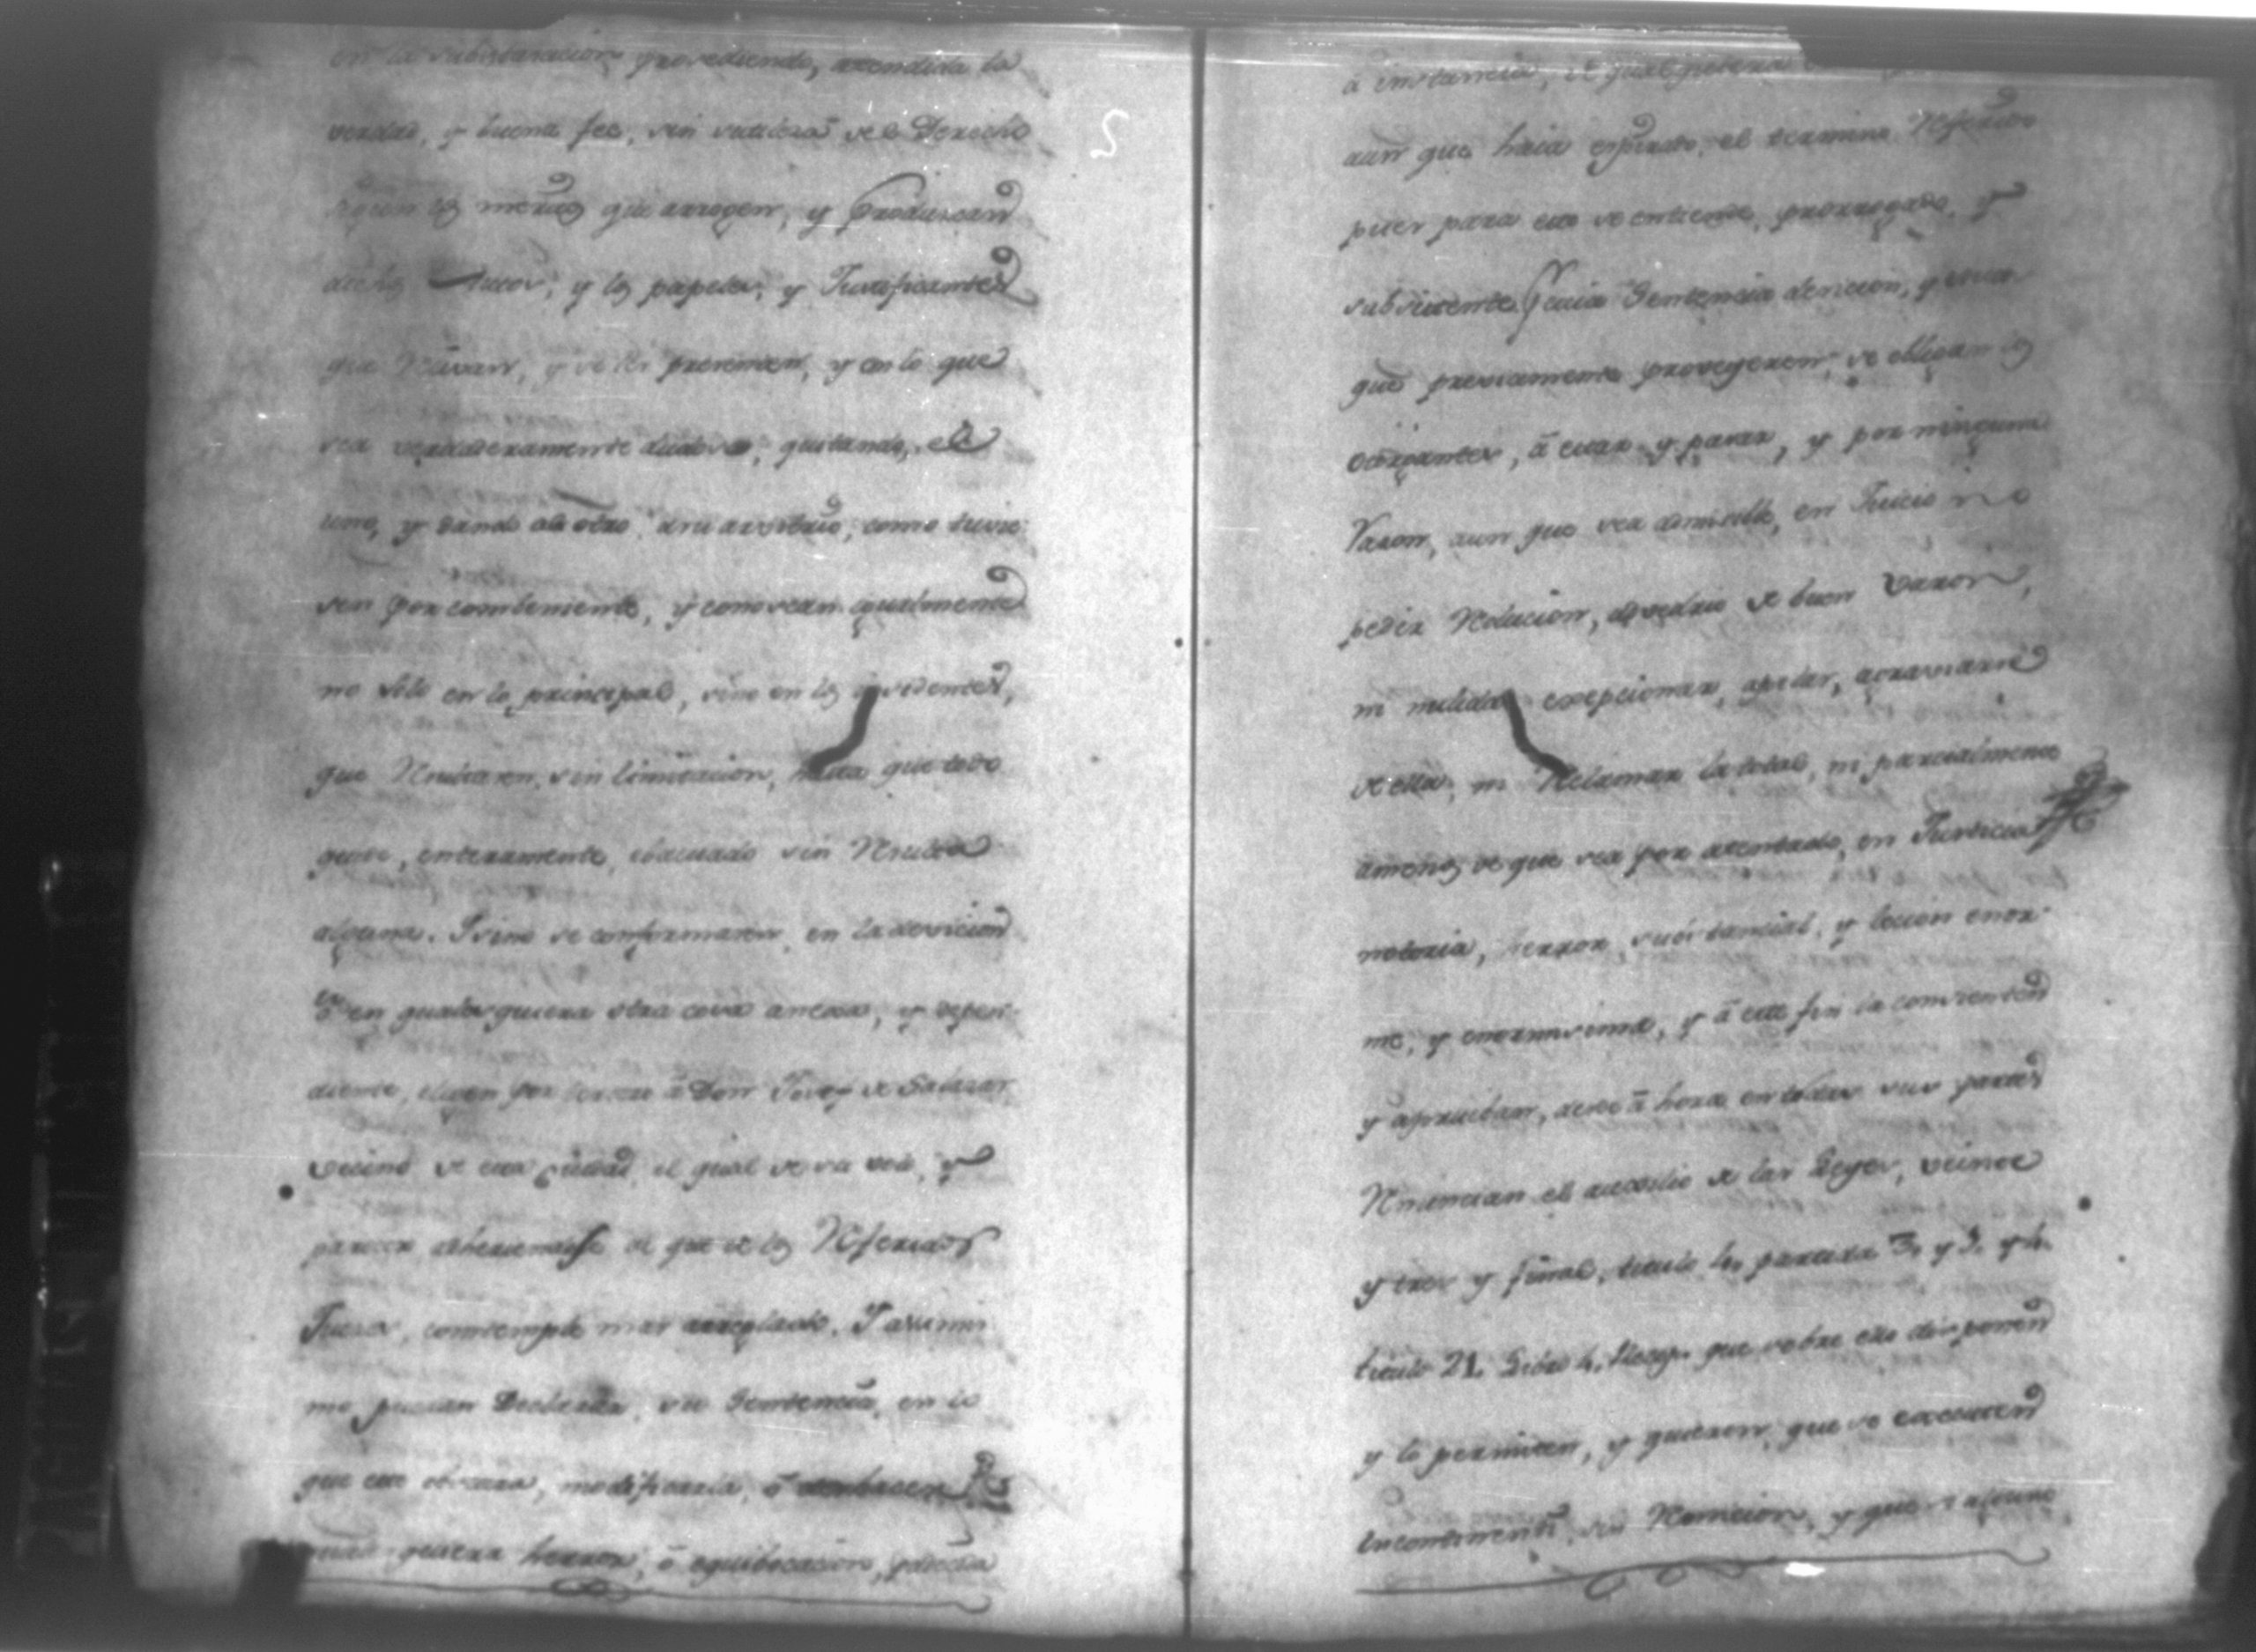 en la substanciacion procediendo, atendida la
verdad, y buena fee, sin sutileza de el Derecho
segun los meritos que arrogen, y produscan
dichos Autos, y los papeles, y Justificantes
que y se les presenten, y en lo que
sea verdaderamente dudoso, quitando, el
uno, y dando al otro, a su arvitrio, como tuvie
sen por combeniente, y conoscan igualmente
no solo en lo principal, sino en los insidentes,
que Resultaren, sin limitacion, hasta que todo
quede, enteramente, ebacuado sin Resulta
alguna. Y si no se conformaren en la desicion
ô en qualesquiera otra cosa anexa, y depen-
diente, elixen por tersero â Don Josef de Salazar
vecino de esta Ciudad, el qual de su voto, y
parecer adheriendose al que de los Referidos
Jueses, contemple mas arreglado. Y asimis
mo puedan Declarar su Sentencia, en lo
que este obscura, modificarla, ô
qualquiera herror, ô equibocacion, padesida
â instancia, el qual
aun que haia espirado, el termino Referido
pues para esto se entiende, prorrogado, y
subsistente cuia Sentencia desicion,
que previamente proveyeren, se obligan los
otorgantes, â estar y pasar, y por ninguna
Razon, aun que sea admisible, en Juicio no
pedir Reducion, alvedrio de buen varon,
ni nulidad excepcionar, apelar, agraviarse
de ella, ni Reclamar la total, ni parcialmente
amenos de que sea por atentado, en Justicia
notoria, herror, substancial, y lecion enor-
me, y enormisima, y â este fin la consienten
y aprueban, desde â hora en todas sus partes
Renuncian el auxilio de las Leyes, veinte
y tres y final, titulo 4, partida 3, y
titulo 21. Libro 4. Recop. que sobre esto disponen
y lo permiten, y quieren que se executen
incontinenti, sin Remicion, y que si alguno